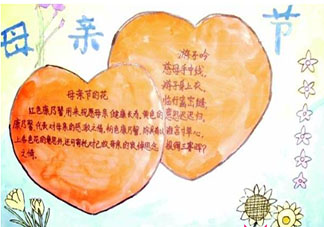 母亲节
游子吟
慈母手中线,
游子身上衣,
临行密密缝,
意恐迟迟归,
谁言寸草心,
报得三春晖?
母亲节的花
红色康乃馨用来祝愿母亲健康长寿,黄色的
康乃馨,代表对母亲的感激之情,粉色康乃馨,
上杂色花的意思外,还可有
之情。